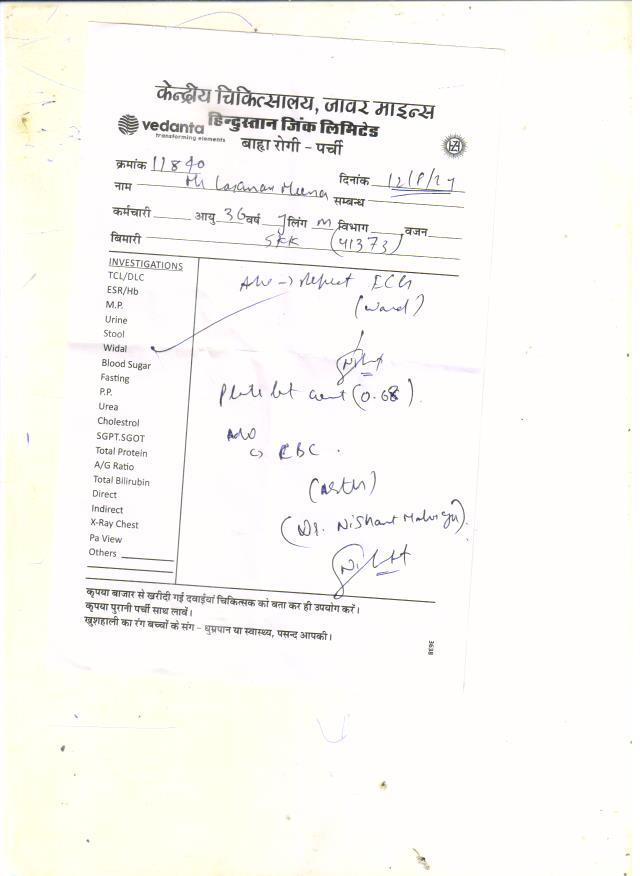 केन्द्रीय चिकित्सालय, जावर माइन्स
vedanta हिन्दुस्तान जिंक लिमिटेड
transforming elements
बाह्य रोगी - पर्ची
क्रमांक 11840 दिनांक
नाम Mr Meena सम्बन्ध
कर्मचारी आयु 36 वर्ष लिंग M विभाग वजन
बिमारी SKK (41373)
INVESTIGATIONS
TCL/DLC
ESR/Hb
M.P.
Urine
Stool
Widal
Blood Sugar
Fasting
P.P.
Urea
Cholestrol
SGPT.SGOT
Total Protein
A/G Ratio
Total Bilirubin
Direct
Indirect
X-Ray Chest
Pa View
Others
Adv → Repeat ECG
(ward)
Platelet count (0.68).
Adv
CBC.
(Dr. Nishant
कृपया बाजार से खरीदी गई दवाईयां चिकित्सक को बता कर ही उपयोग करें।
कृपया पुरानी पर्ची साथ लावें।
खुशहाली का रंग बच्चों के संग - धुम्रपान या स्वास्थ्य, पसन्द आपकी।
3638